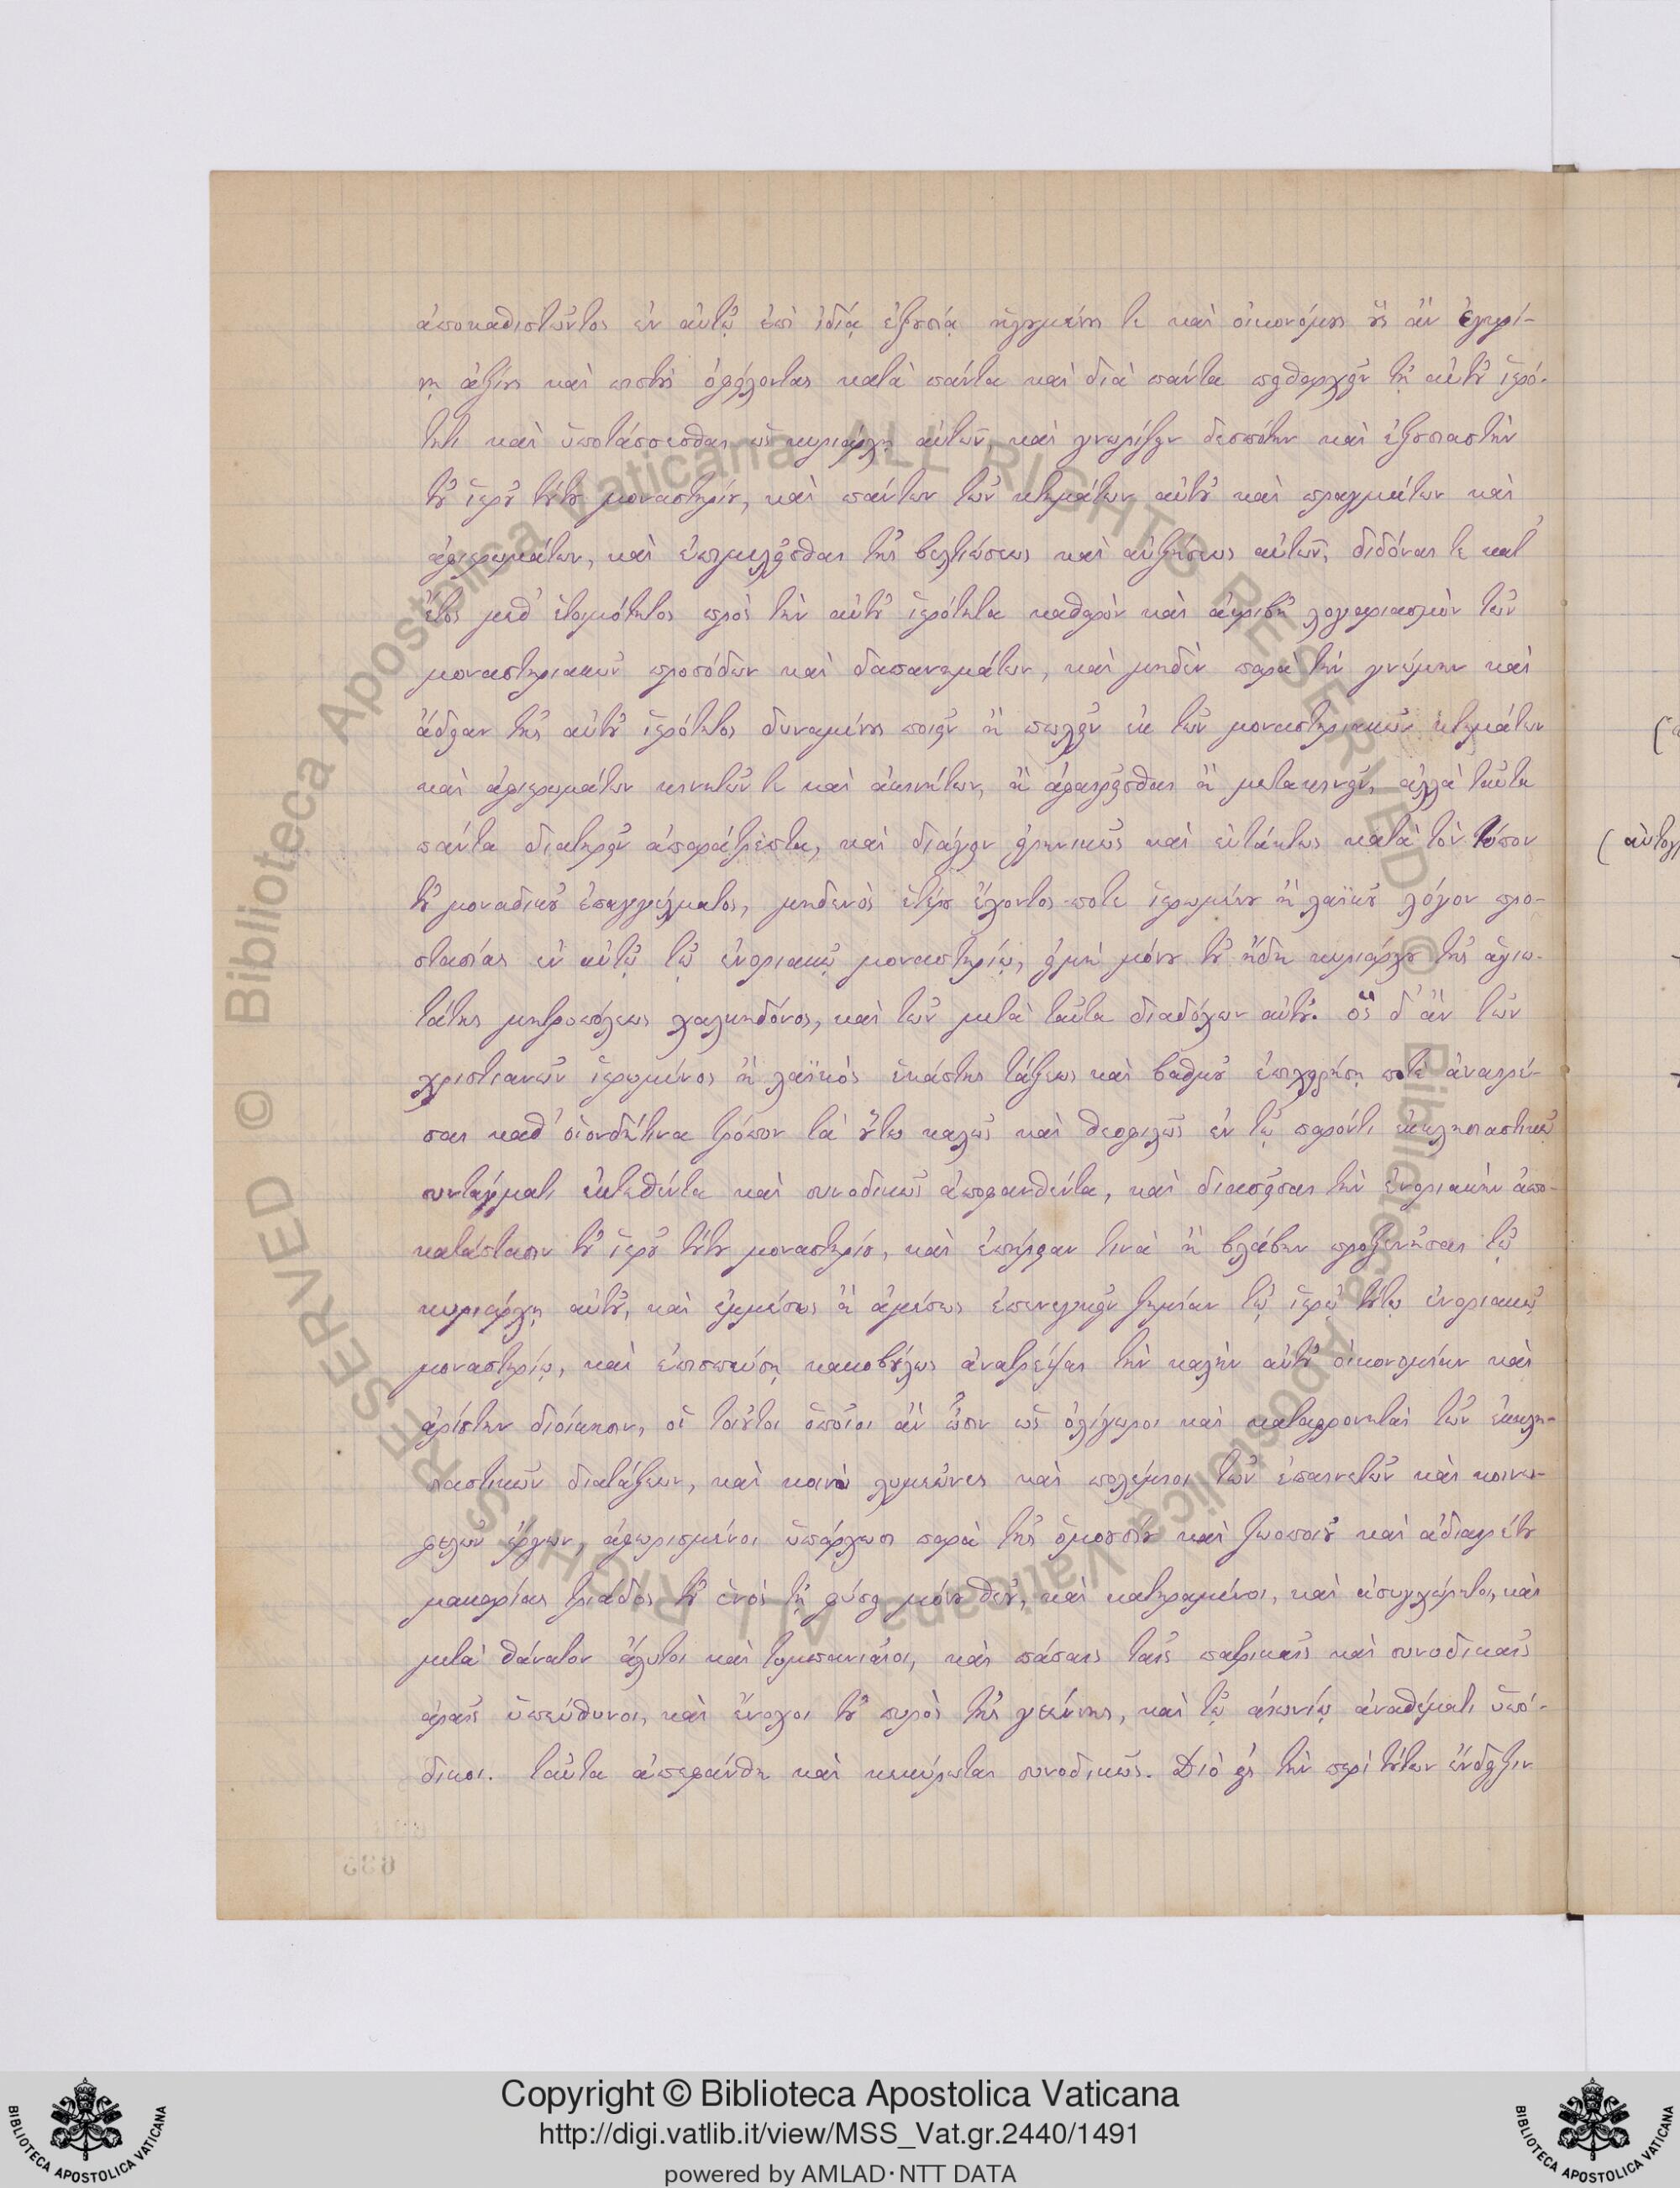 ἀποκαθιστῶντος ἐν αὐτῷ ἐπὶ ἰδίᾳ ἐξουσίᾳ ἡγουμένους τε καὶ οἰκονόμους οὓς ἂν ἐγκρί-
νῃ ἀξίους καὶ πιστοὺς ὀφείλοντας κατὰ πάντα καὶ διὰ πάντα πειθαρχεῖν τῇ αὐτοῦ ἱερό-
τητι καὶ ὑποτάσσεσθαι ὡς κυριάρχῃ αὐτῶν, καὶ γνωρίζειν δεσπότην καὶ ἐξουσιαστὴν
τοῦ ἱεροῦ τούτου μοναστηρίου, καὶ πάντων τῶν κτημάτων αὐτοῦ καὶ πραγμάτων καὶ
ἀφιερωμάτων, καὶ ἐπιμελεῖσθαι τῆς βελτιώσεως καὶ αὐξήσεως αὐτῶν, διδόναι τε κατ'
ἔτος μεθ' ἑτοιμότητος πρὸς τὴν αὐτοῦ ἱερότητα καθαρὸν καὶ ἀκριβῆ λογαριασμὸν τῶν
μοναστηριακῶν προσόδων καὶ δαπανημάτων, καὶ μηδὲν παρὰ τὴν γνώμην καὶ
ἄδειαν τῆς αὐτοῦ ἱερότητος δυναμένους ποιεῖν ἢ πωλεῖν ἐκ τῶν μοναστηριακῶν κτημάτων
καὶ ἀφιερωμάτων κινητῶν τε καὶ ἀκινήτων, ἢ ἀφαιρεῖσθαι ἢ μετακινεῖν, ἀλλὰ ταῦτα
πάντα διατηρεῖν ἀπαράτρεπτα, καὶ διάγειν εἰρηνικῶς καὶ εὐτάκτως κατὰ τὸν τύπον
τοῦ μοναδικοῦ ἐπαγγέλματος, μηδενὸς ἑτέρου ἔχοντός ποτε ἱερωμένου ἢ λαϊκοῦ λόγον προ-
στασίας ἐν αὐτῷ τῷ ἐνοριακῷ μοναστηρίῳ, εἰμὴ μόνου τοῦ ἤδη κυριάρχου τῆς ἁγιω-
τάτης μητροπόλεως χαλκηδόνος, καὶ τῶν μετὰ ταῦτα διαδόχων αὐτοῦ. ὃς δ' ἂν τῶν
χριστιανῶν ἱερωμένος ἢ λαϊκὸς ἑκάστης τάξεως καὶ βαθμοῦ ἐπιχειρήσῃ ποτὲ ἀναιρέ-
σαι καθ' οἱονδήτινα τρόπον τὰ οὕτω καλῶς καὶ θεοφιλῶς ἐν τῷ παρόντι ἐκκλησιαστικῷ
συνταγματι ἐκτεθέντα καὶ συνοδικῶς ἀποφανθέντα, καὶ διασεῖσαι τὴν ἐνοριακὴν ἀπο-
κατάστασιν τοῦ ἱεροῦ τούτου μοναστηρίου, καὶ ἐπήρειαν τινὰ ἢ βλάβην προξενῆσαι τῷ
κυριάρχῃ αὐτοῦ, καὶ ἐμμέσως ἢ ἀμέσως ἐπενεγκεῖν ζημίαν τῷ ἱερῷ τούτῳ ἐνοριακῷ
μοναστηρίῳ, καὶ ἐπισπεύσῃ κακοβούλως ἀνατρέψαι τὴν καλὴν αὐτοῦ οἰκονομίαν καὶ
ἀρίστην διοίκησιν, οἱ τοιοῦτοι ὁποῖοι ἂν ὦσιν ὡς ὀλίγωροι καὶ καταφρονηταὶ τῶν ἐκκλη-
σιαστικῶν διατάξεων, καὶ κοινοὶ λυμεῶνες καὶ πολέμιοι τῶν ἐπαινετῶν καὶ κοινω-
φελῶν ἔργων, ἀφωρισμένοι ὑπάρχωσι παρὰ τῆς ὁμοουσίου καὶ ζωοποιοῦ καὶ ἀδιαιρέτου
μακαρίας τριάδος τοῦ ἑνὸς τῇ φύσει μόνου θεοῦ, καὶ κατηραμένοι, καὶ ἀσυγχώρητοι, καὶ
μετὰ θάνατον ἄλυτοι καὶ τυμπανιαῖοι, καὶ πάσαις ταῖς πατρικαῖς καὶ συνοδικαῖς
ἀραῖς ὑπεύθυνοι, καὶ ἔνοχοι τοῦ πυρὸς τῆς γεέννης, καὶ τῷ αἰωνίῳ ἀναθέματι ὑπό-
δικοι. ταῦτα ἀπεφάνθη καὶ κεκύρωται συνοδικῶς. Διὸ εἰς τὴν περὶ τούτων ἔνδειξιν
Copyright © Biblioteca Apostolica Vaticana
http://digi.vatlib.it/view/MSS_Vat.gr.2440/1491
powered by AMLAD·NTT DATA